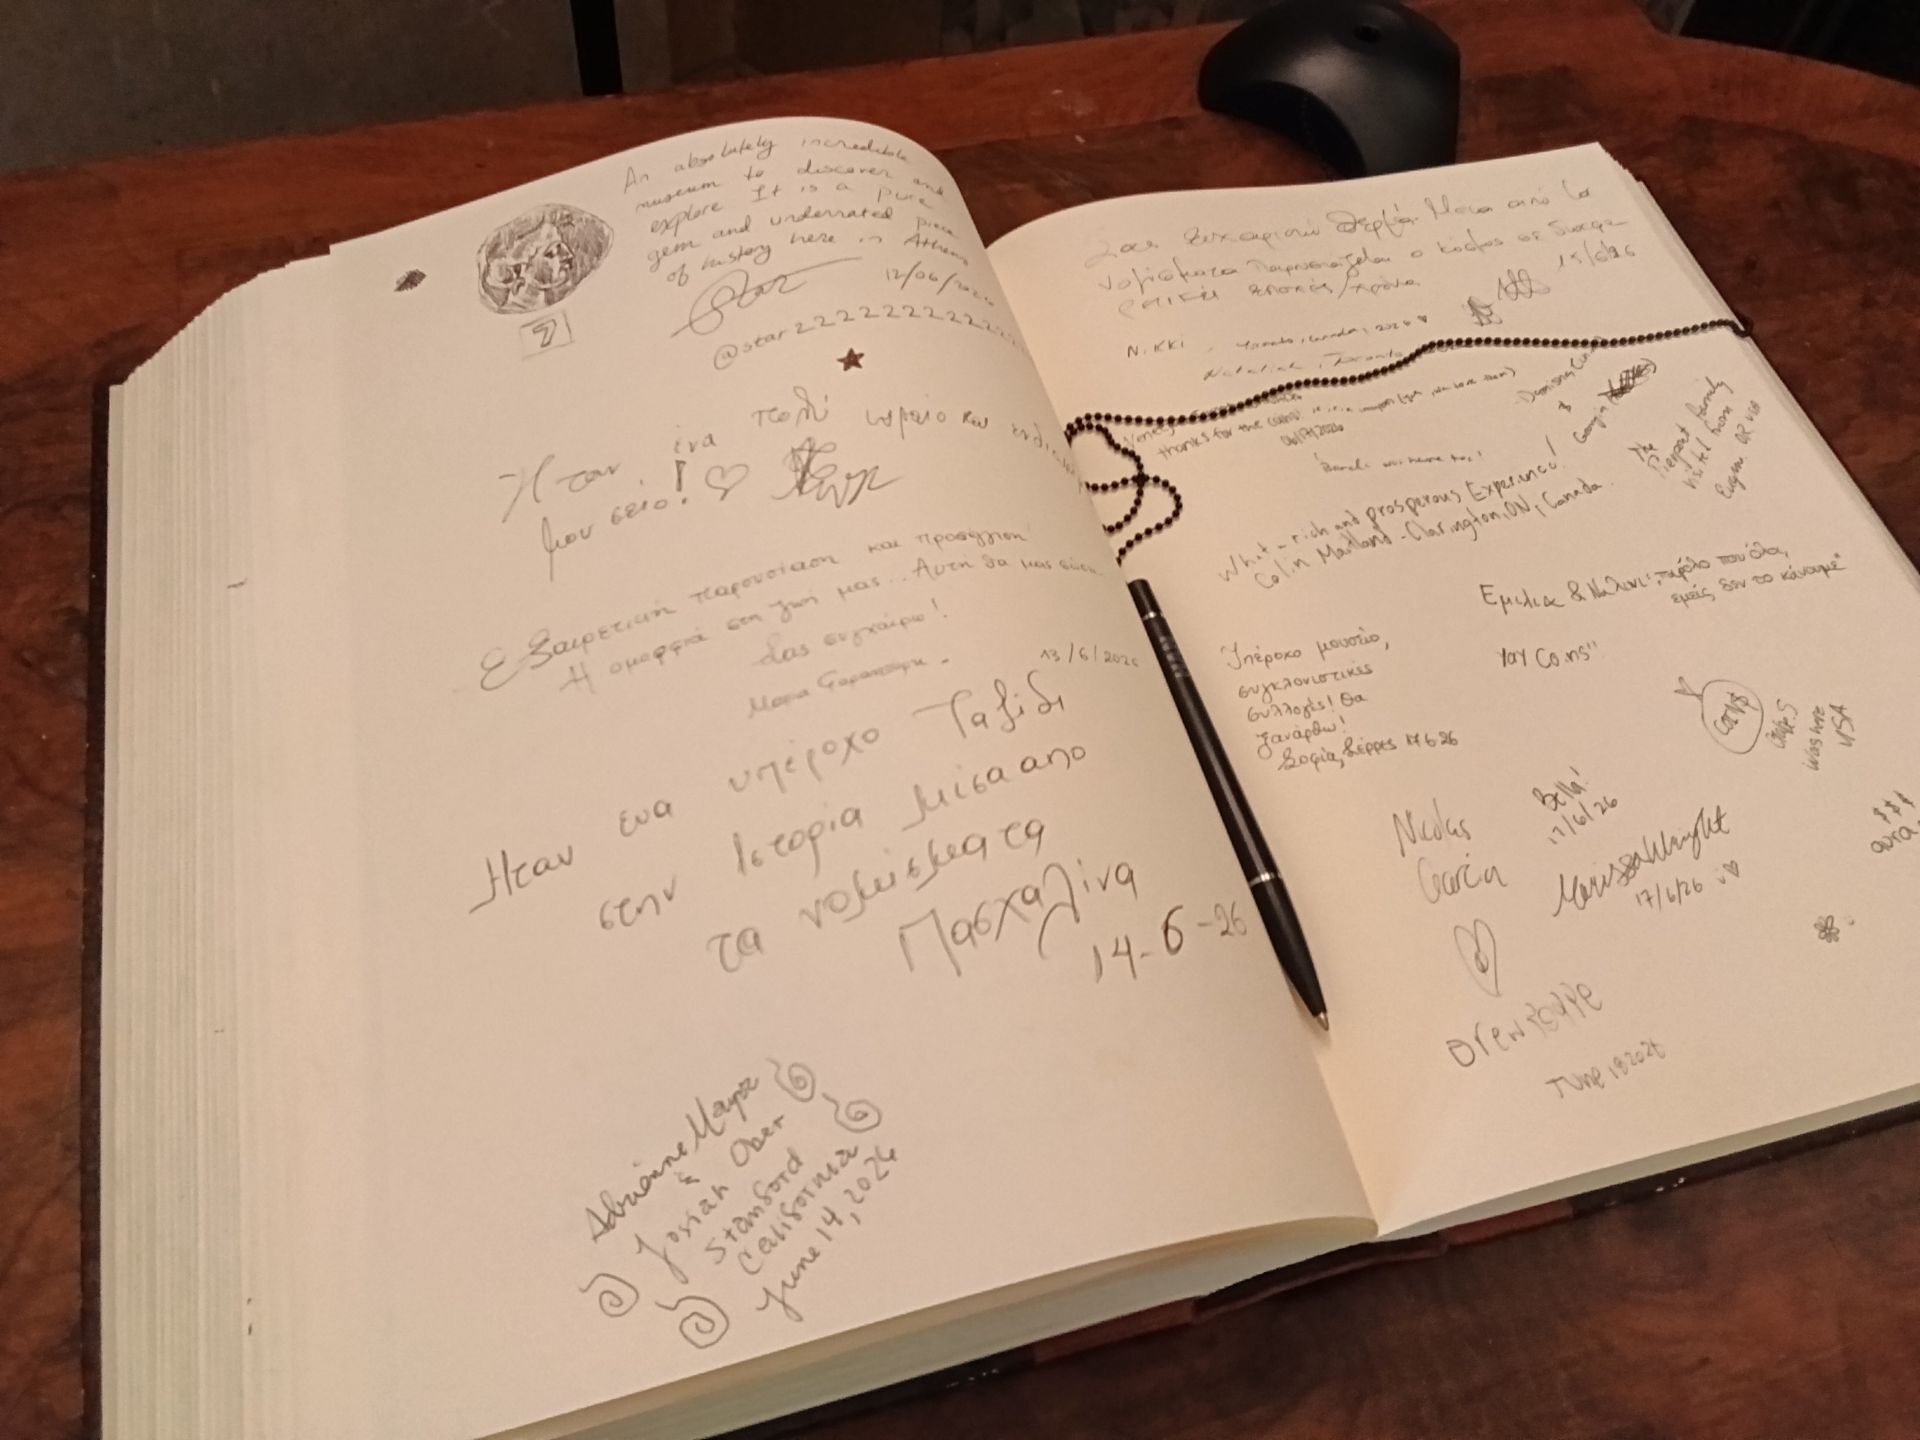 An absolutely incredible
museum to discover and
explore It is a pure
gem and underrated piece
of history here in Athens
12/06/2026
@star22222222222
Ήταν ένα πολύ ωραίο και
μουσείο!
Εξαιρετική παρουσίαση και προσέγγιση
Η ομορφιά στη ζωή μας... Αυτή θα μας σώσει
Σας συγχαίρω!
13/6/2026
Ηταν ενα υπέροχο Ταξίδι
στην Ιστορία μέσα απο
τα νομίσματα
Πασχαλίνα
14-6-26
Adrianne Mayor
&
Josiah Ober
Stanford
California
June 14, 2026
Σας ευχαριστώ θερμά. Μέσα από τα
νομίσματα παρουσιάζεται ο κόσμος σε διαφο-
ρετικές εποχές/χρόνια
15/6/26
Nikki, Toronto, Canada, 2026
Natalie, Toronto
thanks for the coins!
06/17/2026
What a rich and prosperous Experience!
Colin Maitland - Clarington, ON, Canada
The
Pierpont family
visited from
Eugene OR USA
Εμιλια & Ναλανι: "παρόλο που όλα,
εμείς δεν το κάναμε"
Υπέροχο μουσείο,
συγκλονιστικές
συλλογές! Θα
ξανάρθω!
Σοφία, Σέρρες 17.6.26
Yay Coins"
USA
Nicolas
García
Bella!
17/6/26
Marissa Wright
17/6/26
$$$
aura
Oren
June 18 2026